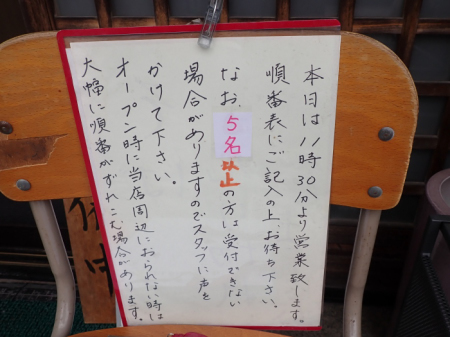 本日は11時30分より営業致します。
順番表にご記入の上、お待ち下さい。
なお、5名以上の方は受付できない
場合がありますのでスタッフに声を
かけて下さい。
オープン時に当店周辺におられない時は
大幅に順番がずれこむ場合があります。